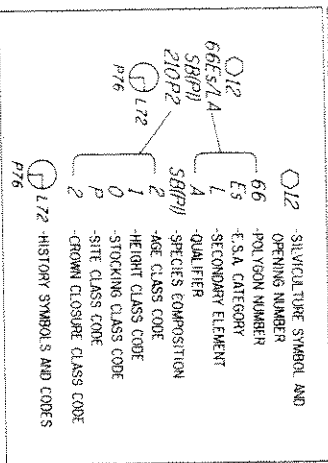 12
66Es/LA
SB(Pl)
210P2
L72
P76
12 -SILVICULTURE SYMBOL AND
OPENING NUMBER
66 -POLYGON NUMBER
Es -E.S.A. CATEGORY
L -SECONDARY ELEMENT
A -QUALIFIER
SB(Pl) -SPECIES COMPOSITION
2 -AGE CLASS CODE
1 -HEIGHT CLASS CODE
0 -STOCKING CLASS CODE
P -SITE CLASS CODE
2 -CROWN CLOSURE CLASS CODE
L72 -HISTORY SYMBOLS AND CODES
P76